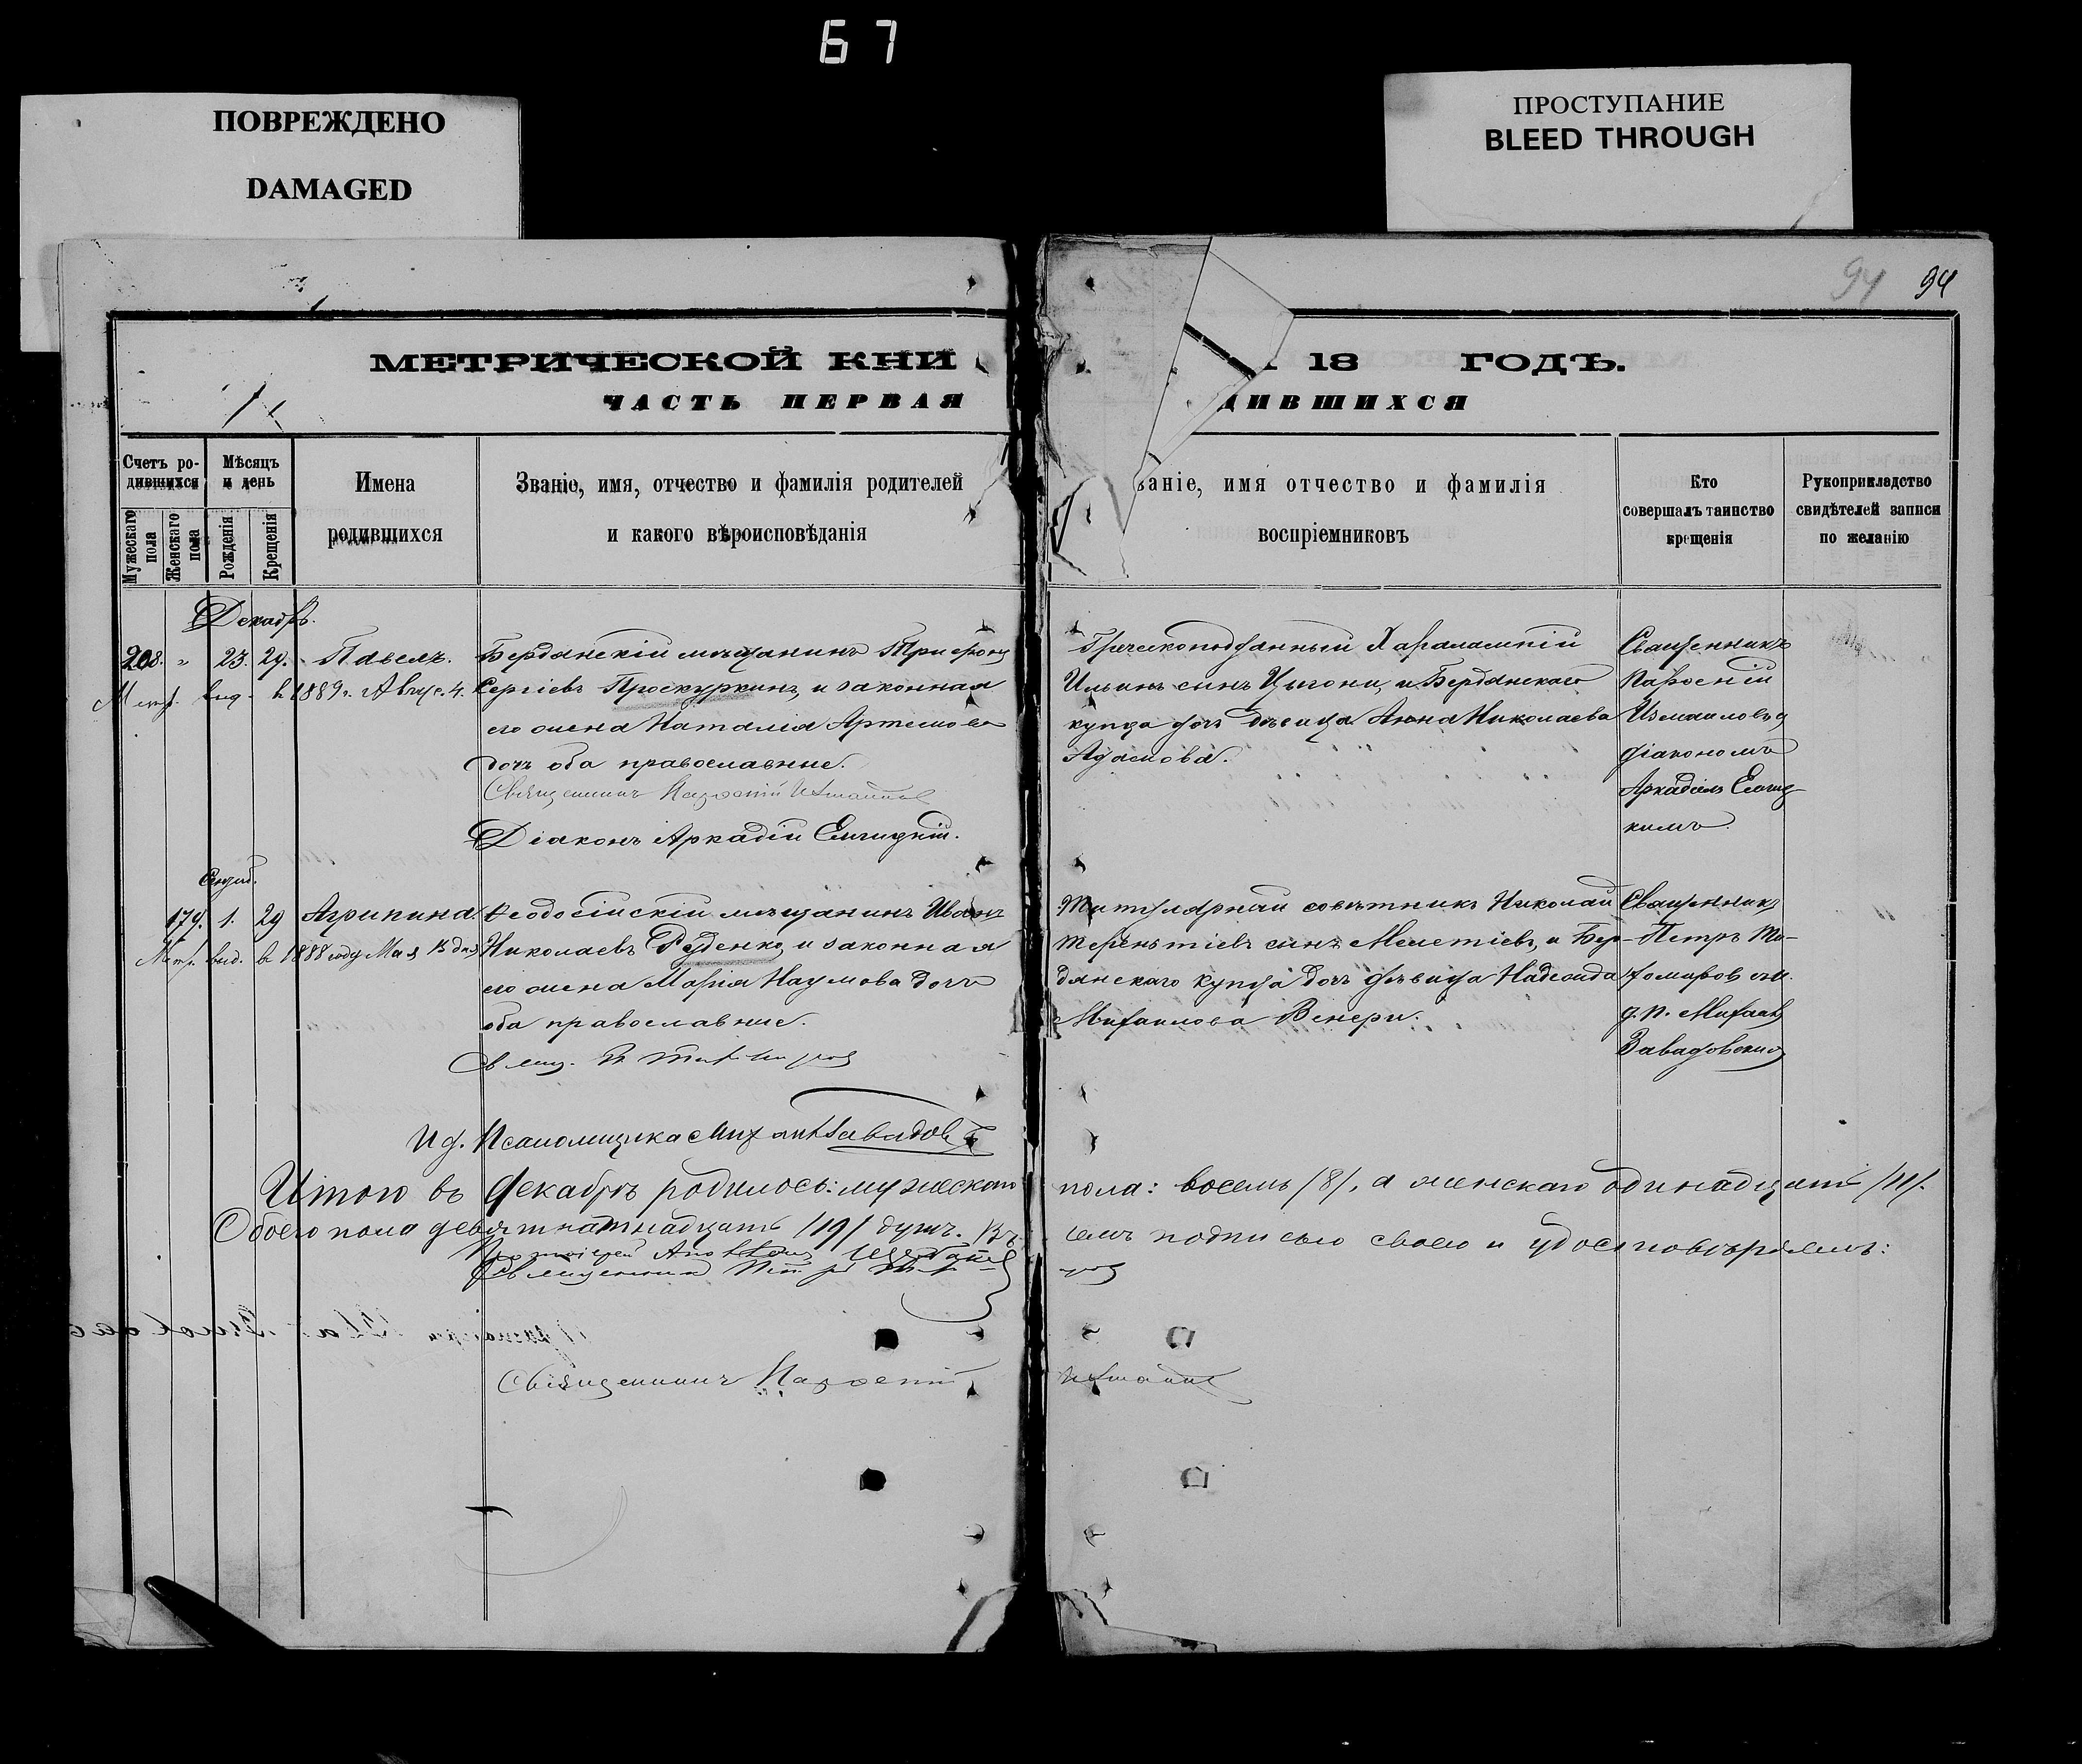 67
ПОВРЕЖДЕНО
DAMAGED
ПРОСТУПАНИЕ
BLEED THROUGH
94 94
МЕТРИЧЕСКОЙ КНИ 18 ГОДЪ.
ЧАСТЬ ПЕРВАЯ ДИВШИХСЯ
Счетъ ро-
дившихся
Мужескаго пола
Женскаго пола
Мѣсяцъ
и день
Рожденія
Крещенія
Имена
родившихся
Званіе, имя, отчество и фамилія родителей
и какого вѣроисповѣданія
ваніе, имя отчество и фамилія
воспріемниковъ
Кто
совершалъ таинство
крещенія
Рукоприкладство
свидѣтелей записи
по желанію
Декабрь.
208. " 23. 29. Павелъ.
Метр. выд. в 1889 г. Август. 4.
Бердянскій мѣщанинъ Трифонъ
Сергіевъ Проскуркинъ, и законная
его жена Наталія Артемова
дочь оба православные.
Священникъ Парѳеній Измаиловъ
Діаконъ Аркадій Енчицкій.
Греческоподданный Харалампій
Ильинъ сынъ Цигони, и Бердянскаго
купца дочь дѣвица Анна Николаева
Адамова.
Священникъ
Парѳеній
Измаиловъ
діакономъ
Аркадіемъ Енчиц-
кимъ.
179. 1. 29 Агрипина.
Метр. выд. в 1888 году Мая 13 дня
Ѳеодосійскій мѣщанинъ Иванъ
Николаевъ Руденко, и законная
его жена Марія Наумова дочь
оба православные.
Титулярный совѣтникъ Николай
Терентіевъ сынъ Мелетіевъ, и Бер-
дянскаго купца дочь дѣвица Надежда
Михаилова Венери.
Священникъ
Петръ Ти-
хомировъ
Михаилъ
Завадовскій
И д. Псаломщика Мих Завадовск
Итого въ Декабрѣ родилось: мужескаго пола: восемь /8/, а женскаго одинадцать /11/.
Обоего пола девятнатнадцать /19/ душъ. Въ чемъ подписью своею и удостовѣряемъ:
Протоіерей
Священникъ Петръ
Священникъ Парѳеній Измаиловъ